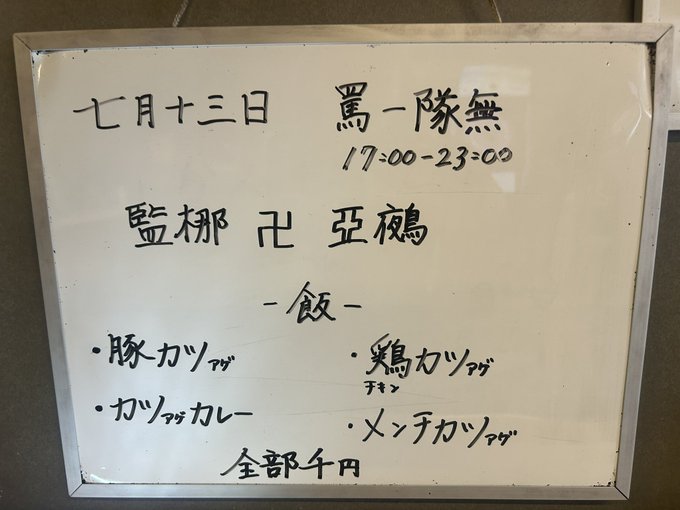 七月十三日 罵一隊無
17:00-23:00
監梛 卍 亞鵺
-飯-
・豚カツアゲ ・鶏カツアゲ
チキン
・カツアゲカレー ・メンチカツアゲ
全部千円